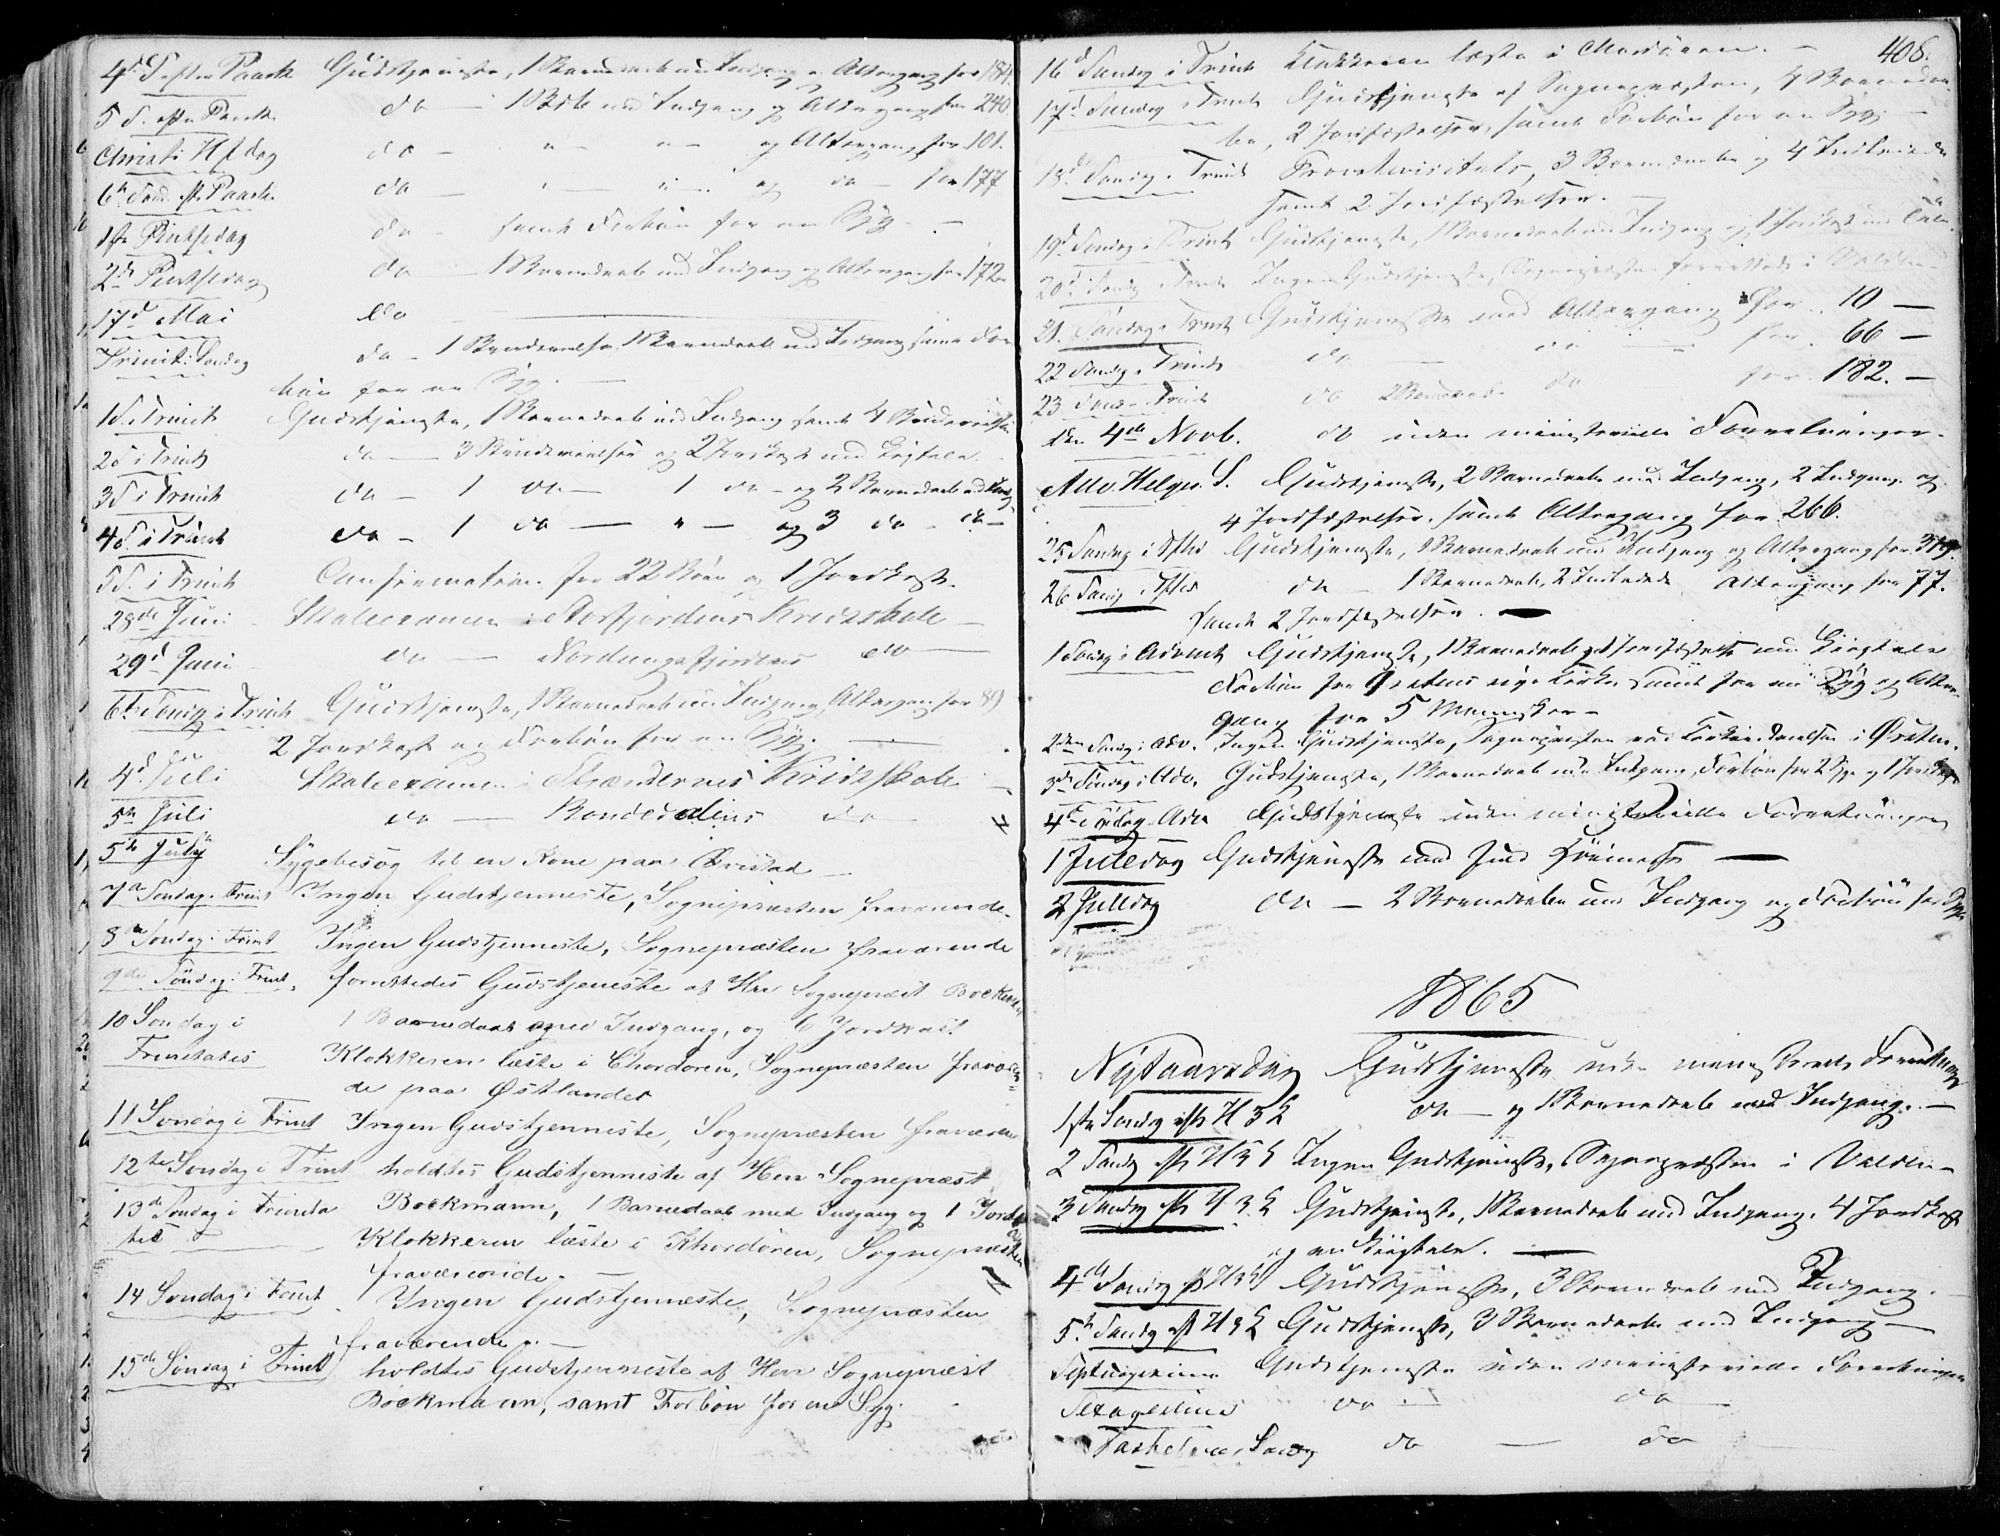 4d S. efter Paaske Gudstjeneste, 1 Barnedaab med Indgang og Altergang for 184.
5 S. efter Paaske do — 1 Bdb med Indgang og Altergang for 240.
Christi Hf dag do — " — " — og Altergang for 101.
6te Sønd. eft. Paaske do — " — " — og do — for 177
1ste Pintsedag do — samt Forbøn for en Syg. —
2den Pintsedag do — 1 Barnedaab med Indgang og Altergang for 172.
17d Mai do —
Trinit: Søndag do — 1 Barnedaab med Indgang samt For
bøn for en Syg. —
1 S. i Trinit Gudstjeneste, 1 Barnedaab med Indgang samt 4
2 S i Trinit do — 3 og 2 Jordkast med Ligtale.
3 S i Trinit do — 1 do — 1 do — og 2 Barnedaab med Indg
4 S. i Trinit do — 1 do — " — og 3 do — do —
5 S. i Trinit Confirmation for 22 Børn og 1 Jordkast.
28de Juni Skoleexamen i Storfjordens Kredsskole —
29d Juni do — Nordungsfjordens do —
6te Søndg i Trinit Gudstjeneste, 1 Barnedaab med Indgang, Altergang for 89
2 Jordkast og Forbøn for en Syg. —
4d Juli Skoleexamen i Strændernes Kredsskole —
5te Juli do — Bondedalens do —
5te July Sygebesøg til en Kone paa Ørstad —
7de Søndag i Trinit Ingen Gudstjenneste, Sognepræsten fraværende.
8de Søndag i Trinit Ingen Gudstjenneste, Sognepræsten fraværende
9de Søndag i Trinit, forrettedes Gudstjeneste af Herr Sognepræst Bockmann
10 Søndag i 1 Barnedaab med Indgang, og 6 Jordkast
Trinitatis Klokkeren læste i Chordøren, Sognepræsten fraværen
de paa Østlandet
11 Søndag i Trinit Ingen Gudstjenneste, Sognepræsten fraværen
12te Søndag i Trinit holdtes Gudstjenneste af Herr Sognepræst
13d Søndag i Trinita Bockmann, 1 Barnedaab med Indgang og 1 Jordk
tis Klokkeren læste i Khordøren, Sognepræsten
fraværende. —
14 Søndag i Trinit Ingen Gudstjenneste, Sognepræsten
fraværende. —
15de Søndag i Trinit holdtes Gudstjenneste af Herr Sognepræst
Bockmann, samt Forbøn for en Syg.
408.
16d Søndg i Trinit Klokkeren læste i Chordøren. —
17d Søndag i Trinit Gudstjeneste af Sognepræsten, 4 Barnedaa
be, 2 Jordfæstelser, samt Forbøn for en Syg. —
18d Søndag i Trinit Provstevisitats, 3 Barnedaabe og 4 Indledede
samt 2 Jordfæstelser. —
19d Søndag i Trinit Gudstjeneste, 1 Barnedaab med Indgang og 1 Jordkast med Tale
20d Søndg i Trinit Ingen Gudstjeneste, Sognepræsten forrettede i Volden
21. Søndag i Trinit Gudstjeneste med Altergang for 10 —
22 Søndg i Trinit do — do — for. 66 —
23 Sønd i Trinit do 2 Barnedaab. do for. 182. —
Den 4de Novb. do uden ministerielle Forretninger.
Alle Helgen S. Gudstjeneste, 2 Barnedaab med Indgang, 2 Indgang og
4 Jordfæstelser. samt Altergang for 266.
25 Søndag i Trinit Gudstjeneste, 1 Barnedaab med Indgang og Altergang for 319.
26 Søndg i Trinit do — 1 Barnedaab, 2 Indledede Altergang for 77.
samt 2 Jordfæstelser. —
1 Søndg i Advent Gudstjeneste, 1 Barnedaab og 1 Jordfæstelse med Ligtale
Forbøn for Ørstens nye Kirke samt for en Syg og Alter
gang for 5 Mennesker —
2den Søndg i Adv. Ingen Gudstjeneste, Sognepræsten ved Kirkeindvielsen i Ørsten.
3de Søndag i Adv. Gudstjeneste, 1 Barnedaab uden Indgang, Forbøn for 2 Syge og 1 Jordkast
4de Søndag Adv Gudstjeneste uden ministerielle Forretninger
1 Juledag Gudstjeneste med Juul Høimesse —
2 Juledag do — 2 Barnedaabe med Indgang og Forbøn for Syge
1865
Nytaarsdag Gudstjeneste uden ministerielle Forretninger
1ste Søndg eft H 3 K do — og 1 Barnedaab med Indgang. —
2 Søndg eft H 3 K Ingen Gudstjeneste, Sognepræsten i Volden —
3 Søndag eft H 3 K Gudstjeneste, 1 Barnedaab med Indgang, 4 Jordkast
og en Ligtale. —
4de Søndg eft H 3 K Gudstjeneste, 3 Barnedaab med Indgang. —
5te Søndg eft H 3 K Gudstjeneste, 3 Barnedaabe med Indgang —
Septuagesima Gudstjeneste uden ministerielle Forretninger
Sexagesima do — do —
Fastelavns Søndg do — do —